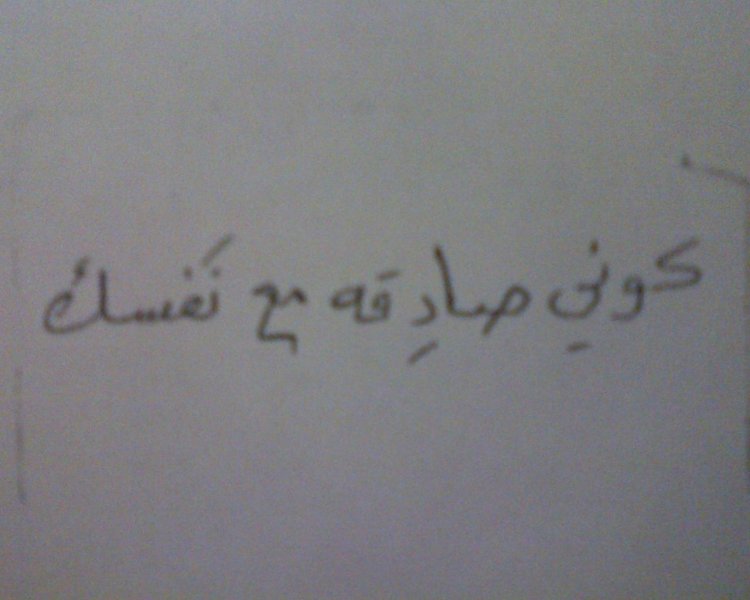 كوني صادِقه مع نَفسك